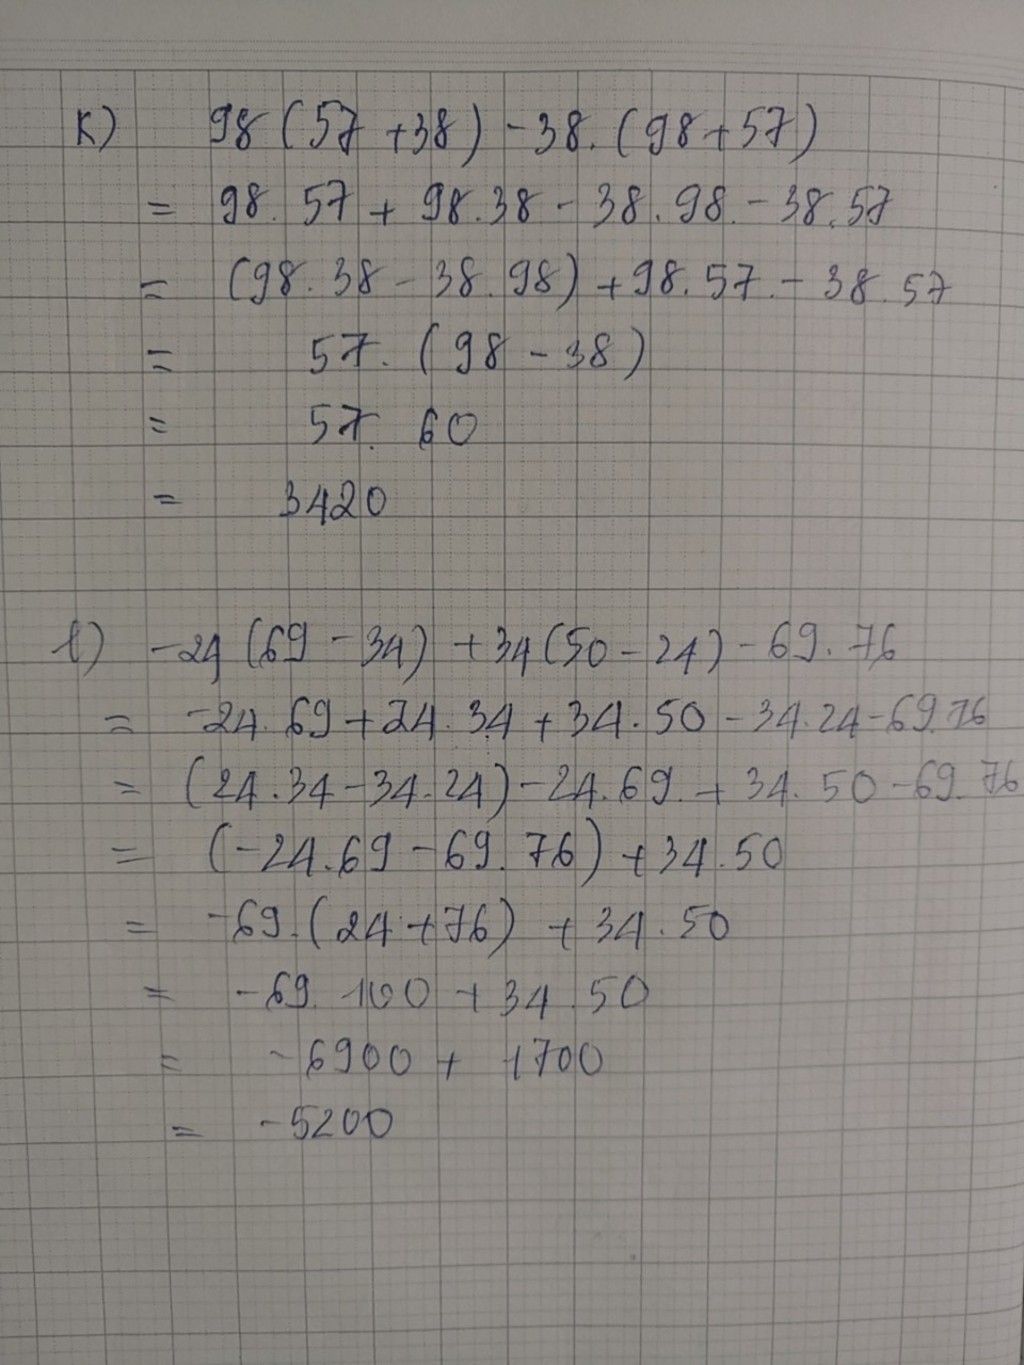 k) 98 (57 + 38) - 38. (98 + 57)
= 98. 57 + 98.38 - 38.98. - 38.57
= (98.38 - 38.98) + 98.57. - 38.57
= 57. (98 - 38)
= 57. 60
= 3420
l) -24 (69 - 34) + 34 (50 - 24) - 69.76
= -24.69 + 24.34 + 34.50 - 34.24 - 69.76
= (24.34 - 34.24) - 24.69. + 34.50 - 69.76
= (-24.69 - 69.76) + 34.50
= -69.(24 + 76) + 34.50
= -69. 100 + 34.50
= -6900 + 1700
= -5200